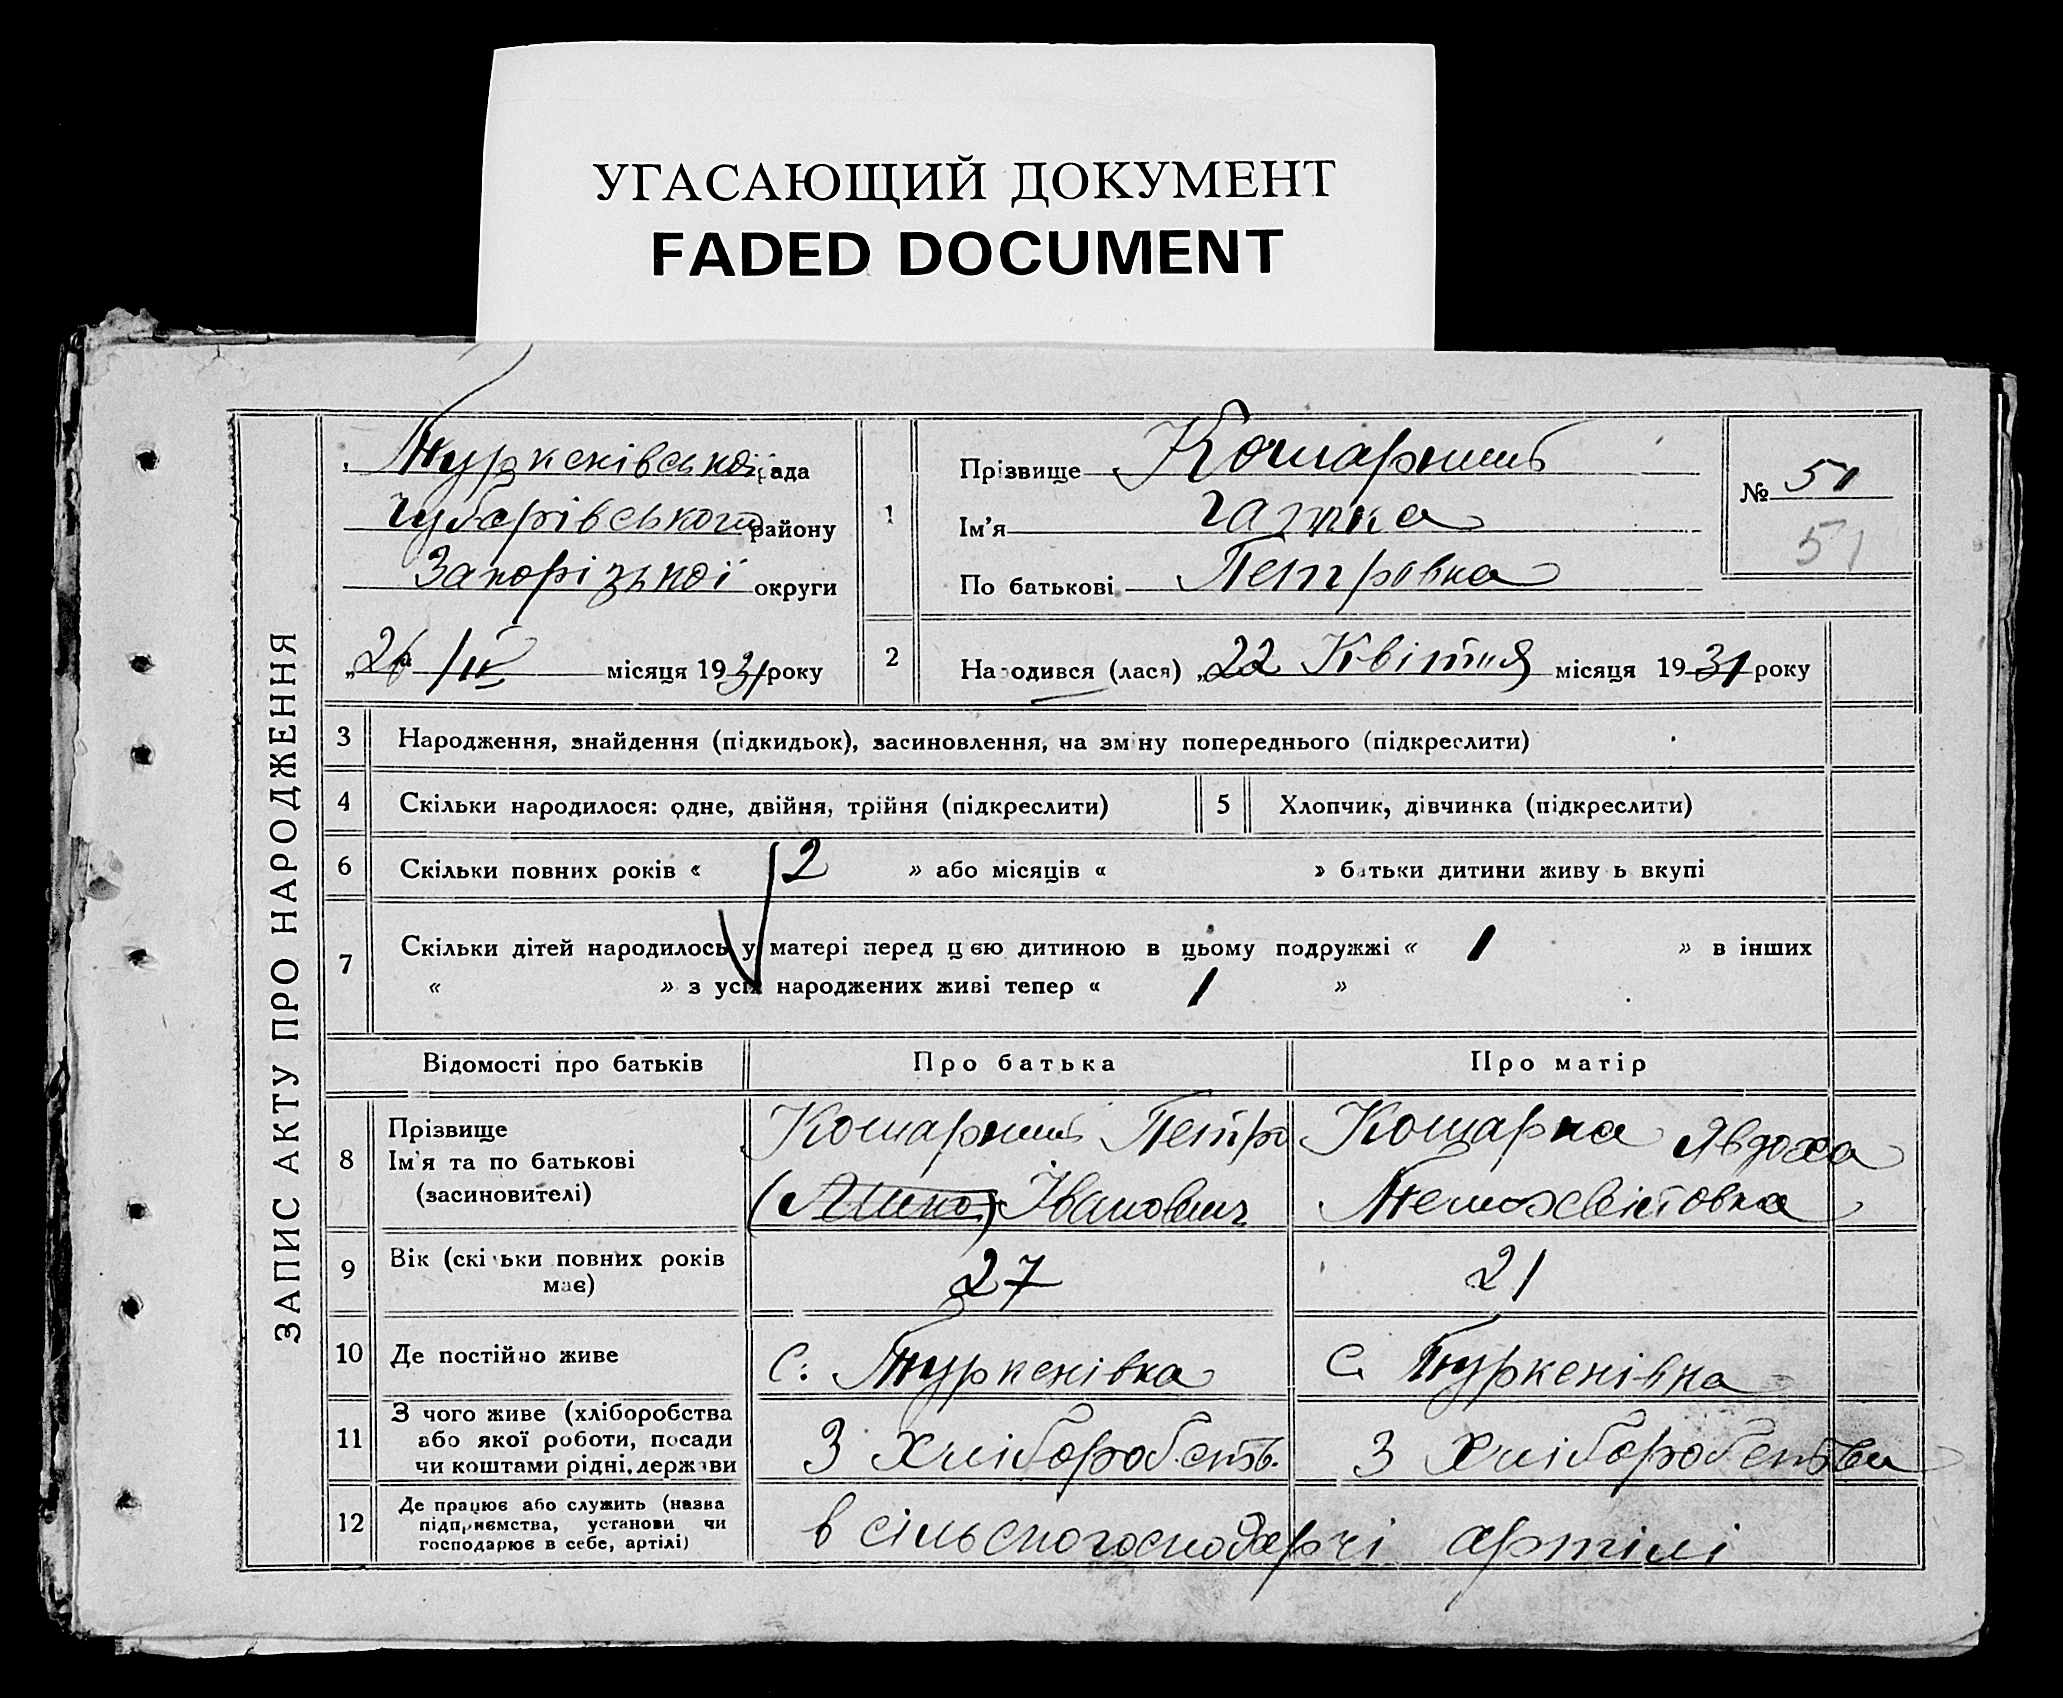 УГАСАЮЩИЙ ДОКУМЕНТ
FADED DOCUMENT
ЗАПИС АКТУ ПРО НАРОДЖЕННЯ
Туркенівської рада
Чубарівського району
Запорізької округи
„26 /IV місяця 1931 року
1
Прізвище
Ім’я Галька
По батькові Петровна
№ 51
51
2 Народився (лася) „22 Квітня місяця 1931 року
3 Народження, знайдення (підкидьок), засиновлення, на зміну попереднього (підкреслити)
4 Скільки народилося: одне, двійня, трійня (підкреслити) 5 Хлопчик, дівчинка (підкреслити)
6 Скільки повних років « 2 » або місяців « » батьки дитини живуть вкупі
7 Скільки дітей народилось у матері перед цією дитиною в цьому подружжі « 1 » в інших
« » з усіх народжених живі тепер « 1 »
Відомості про батьків Про батька Про матір
8 Прізвище
Ім’я та по батькові
(засиновителі)
Петро
Іванович
Кошарна Явдоха
9 Вік (скільки повних років
має)
27 21
10 Де постійно живе с. Туркенівка с. Туркенівка
11 З чого живе (хліборобства
або якої роботи, посади
чи коштами рідні, держави
З хлібороб.ств. З хліборобства
12 Де працює або служить (назва
підприємства, установи чи
господарює в себе, артілі)
в сільскогосподарчі артілі